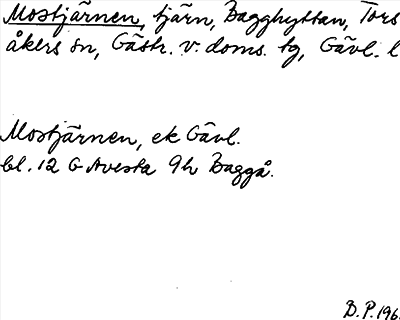 Mostjärnen, tjärn, Bagghyttan, Tors
åkers sn, Gästr. v. doms. tg, Gävl. l
Mostjärnen, ek Gävl.
bl. 12 G Avesta 9h Baggå.
B.P. 196